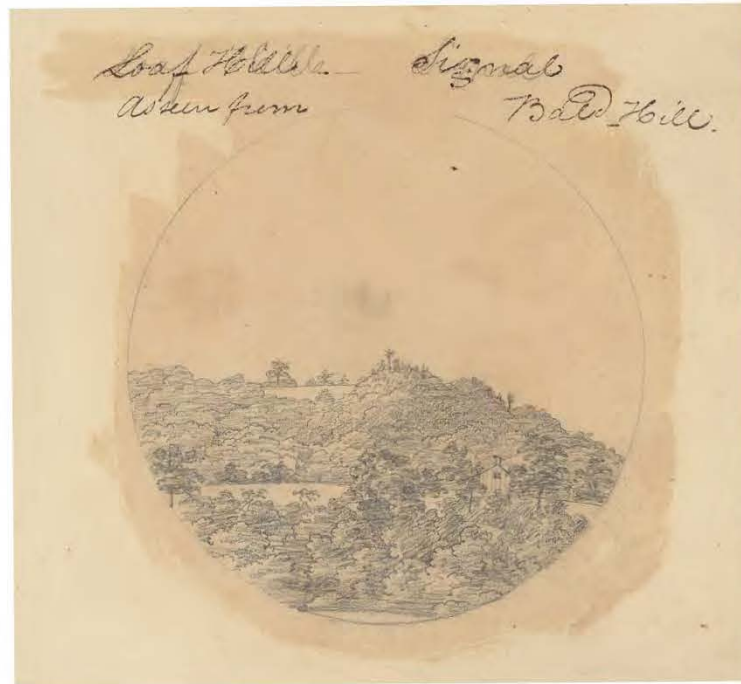 Loaf Hill — Signal
As seen from Bald Hill.